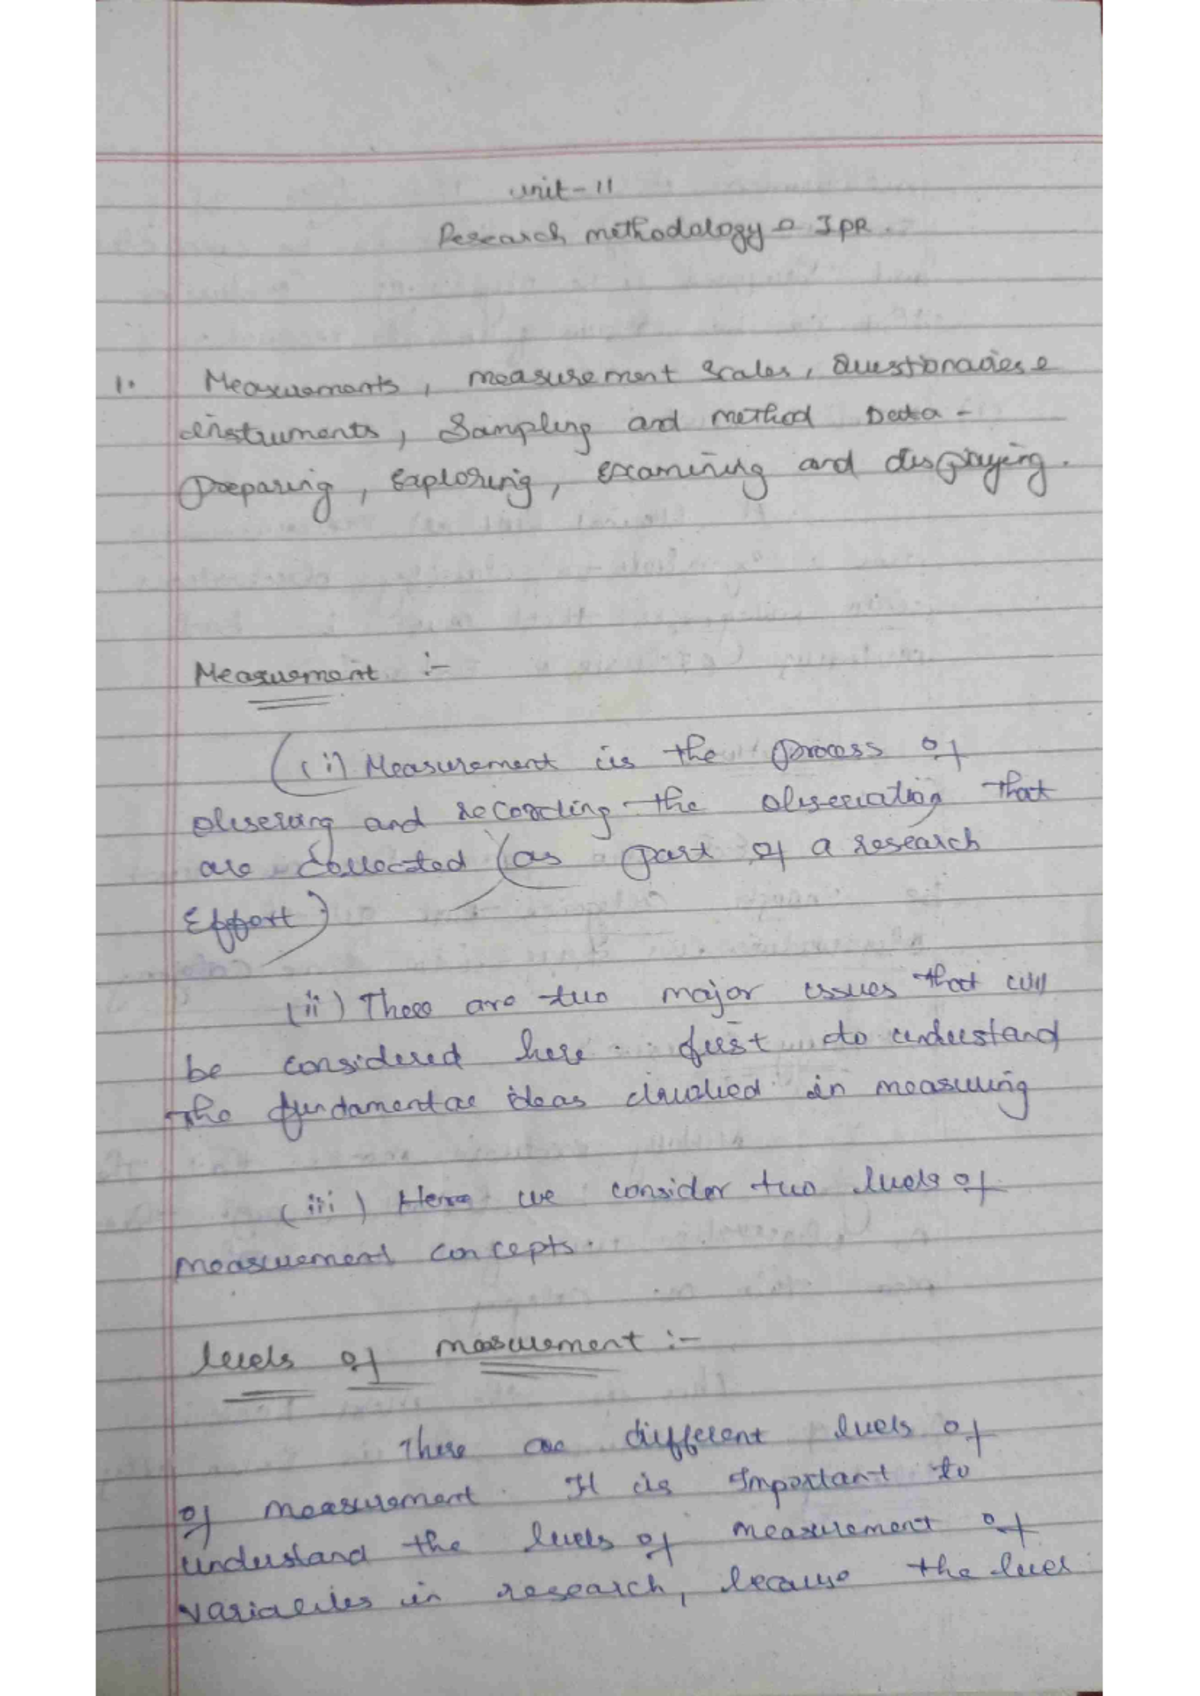 Unit - II
Research methodology & IPR.
1. Measurements, measurement scales, Questionaries &
instruments, Sampling and method Data -
Preparing, Exploring, examining and displaying.
Measurement :-
(i) Measurement is the process of
observing and recording the observation that
are collected (as part of a research
Effort)
(ii) There are two major issues that will
be considered here. first to understand
the fundamental ideas involved in measuring
(iii) Here we consider two levels of
measurement concepts.
levels of measurement :-
There are different levels of
of measurement. It is Important to
understand the levels of measurement of
variables in research, because the level